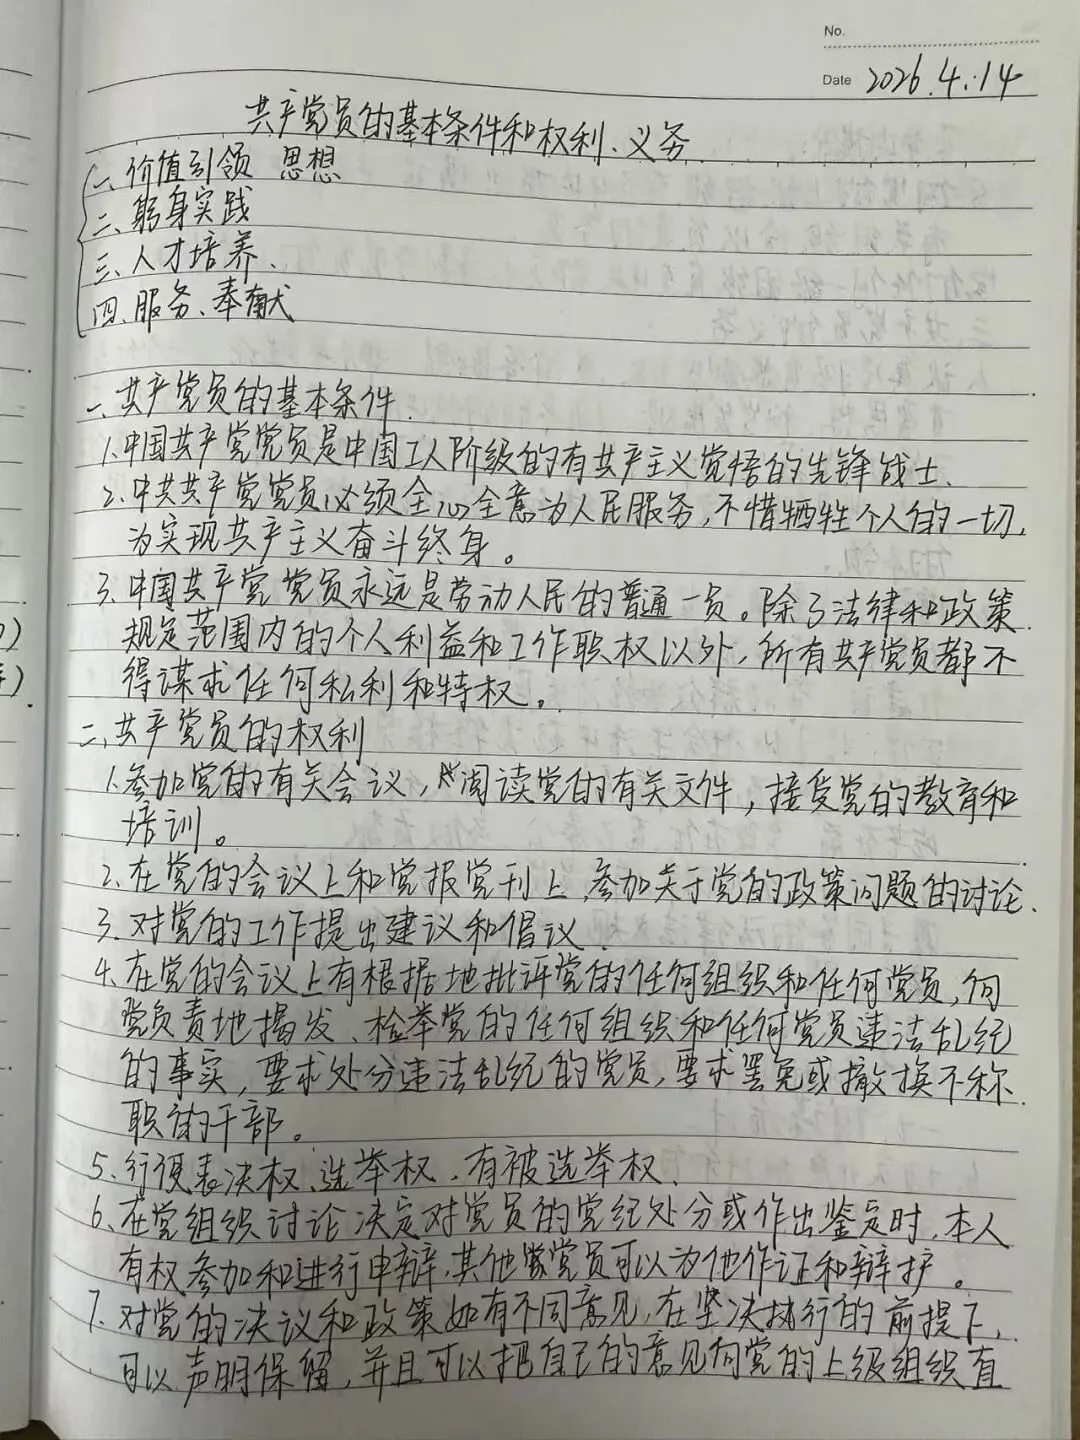 No.
Date 2026.4.14
共产党员的基本条件和权利、义务
一、价值引领 思想
二、躬身实践
三、人才培养、
四、服务、奉献
一、共产党员的基本条件.
1.中国共产党党员是中国工人阶级的有共产主义觉悟的先锋战士.
2.中共共产党党员必须全心全意为人民服务,不惜牺牲个人的一切,
为实现共产主义奋斗终身。
3.中国共产党党员永远是劳动人民的普通一员。除了法律和政策
规定范围内的个人利益和工作职权以外,所有共产党员都不
得谋求任何私利和特权。
二、共产党员的权利
1.参加党的有关会议,阅读党的有关文件,接受党的教育和
培训。
2.在党的会议上和党报党刊上,参加关于党的政策问题的讨论.
3.对党的工作提出建议和倡议.
4.在党的会议上有根据地批评党的任何组织和任何党员,向
党负责地揭发、检举党的任何组织和任何党员违法乱纪
的事实,要求处分违法乱纪的党员,要求罢免或撤换不称
职的干部。
5.行使表决权、选举权,有被选举权.
6.在党组织讨论决定对党员的党纪处分或作出鉴定时,本人
有权参加和进行申辩,其他党员可以为他作证和辩护。
7.对党的决议和政策如有不同意见,在坚决执行的前提下,
可以声明保留,并且可以把自己的意见向党的上级组织直